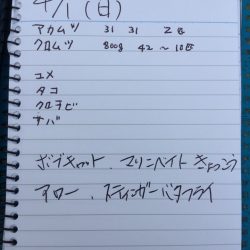 4/1 (日)
アカムツ 31 31 2匹
クロムツ 800g 42 〜10匹
ユメ
タコ
クロタビ
サバ
ボブキャット、マリンベイト きょっこう
アロー、スティンガーバタフライ